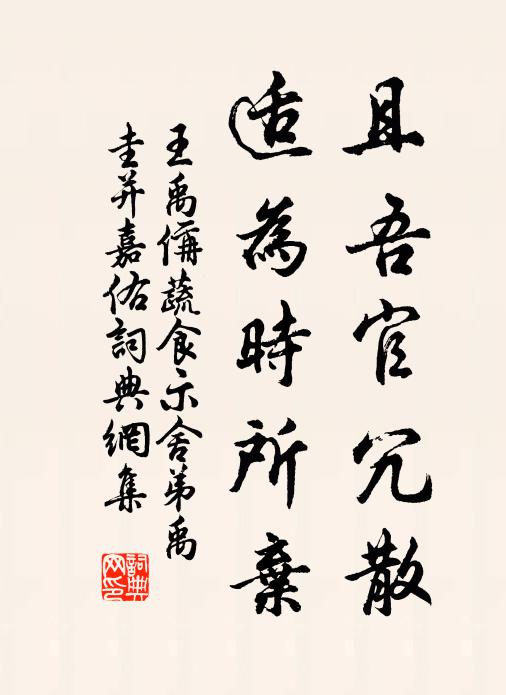 且吾官冗散
适為時所棄
王禹偁蔬食示舍弟禹
圭并嘉佑詞典網集
詞典網印